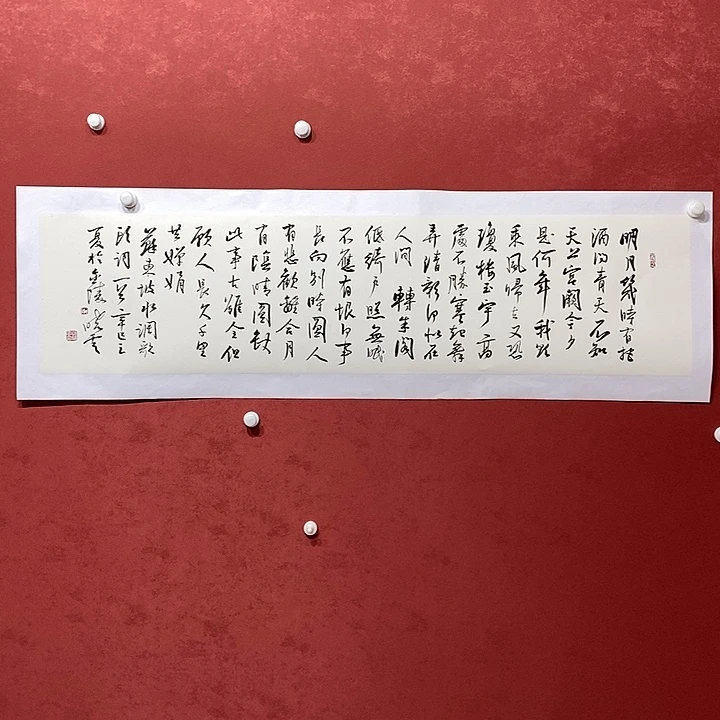 明月幾時有把
酒問青天不知
天上宮闕今夕
是何年我欲
乘風歸去又恐
瓊樓玉宇高
處不勝寒起舞
弄清影何似在
人间轉朱阁
低綺户照無眠
不應有恨何事
長向别時圆人
有悲歡離合月
有陰晴圆缺
此事古難全但
願人長久千里
共嬋娟
蘇東坡水調歌
頭詞辛丑之
夏於金陵曉雲